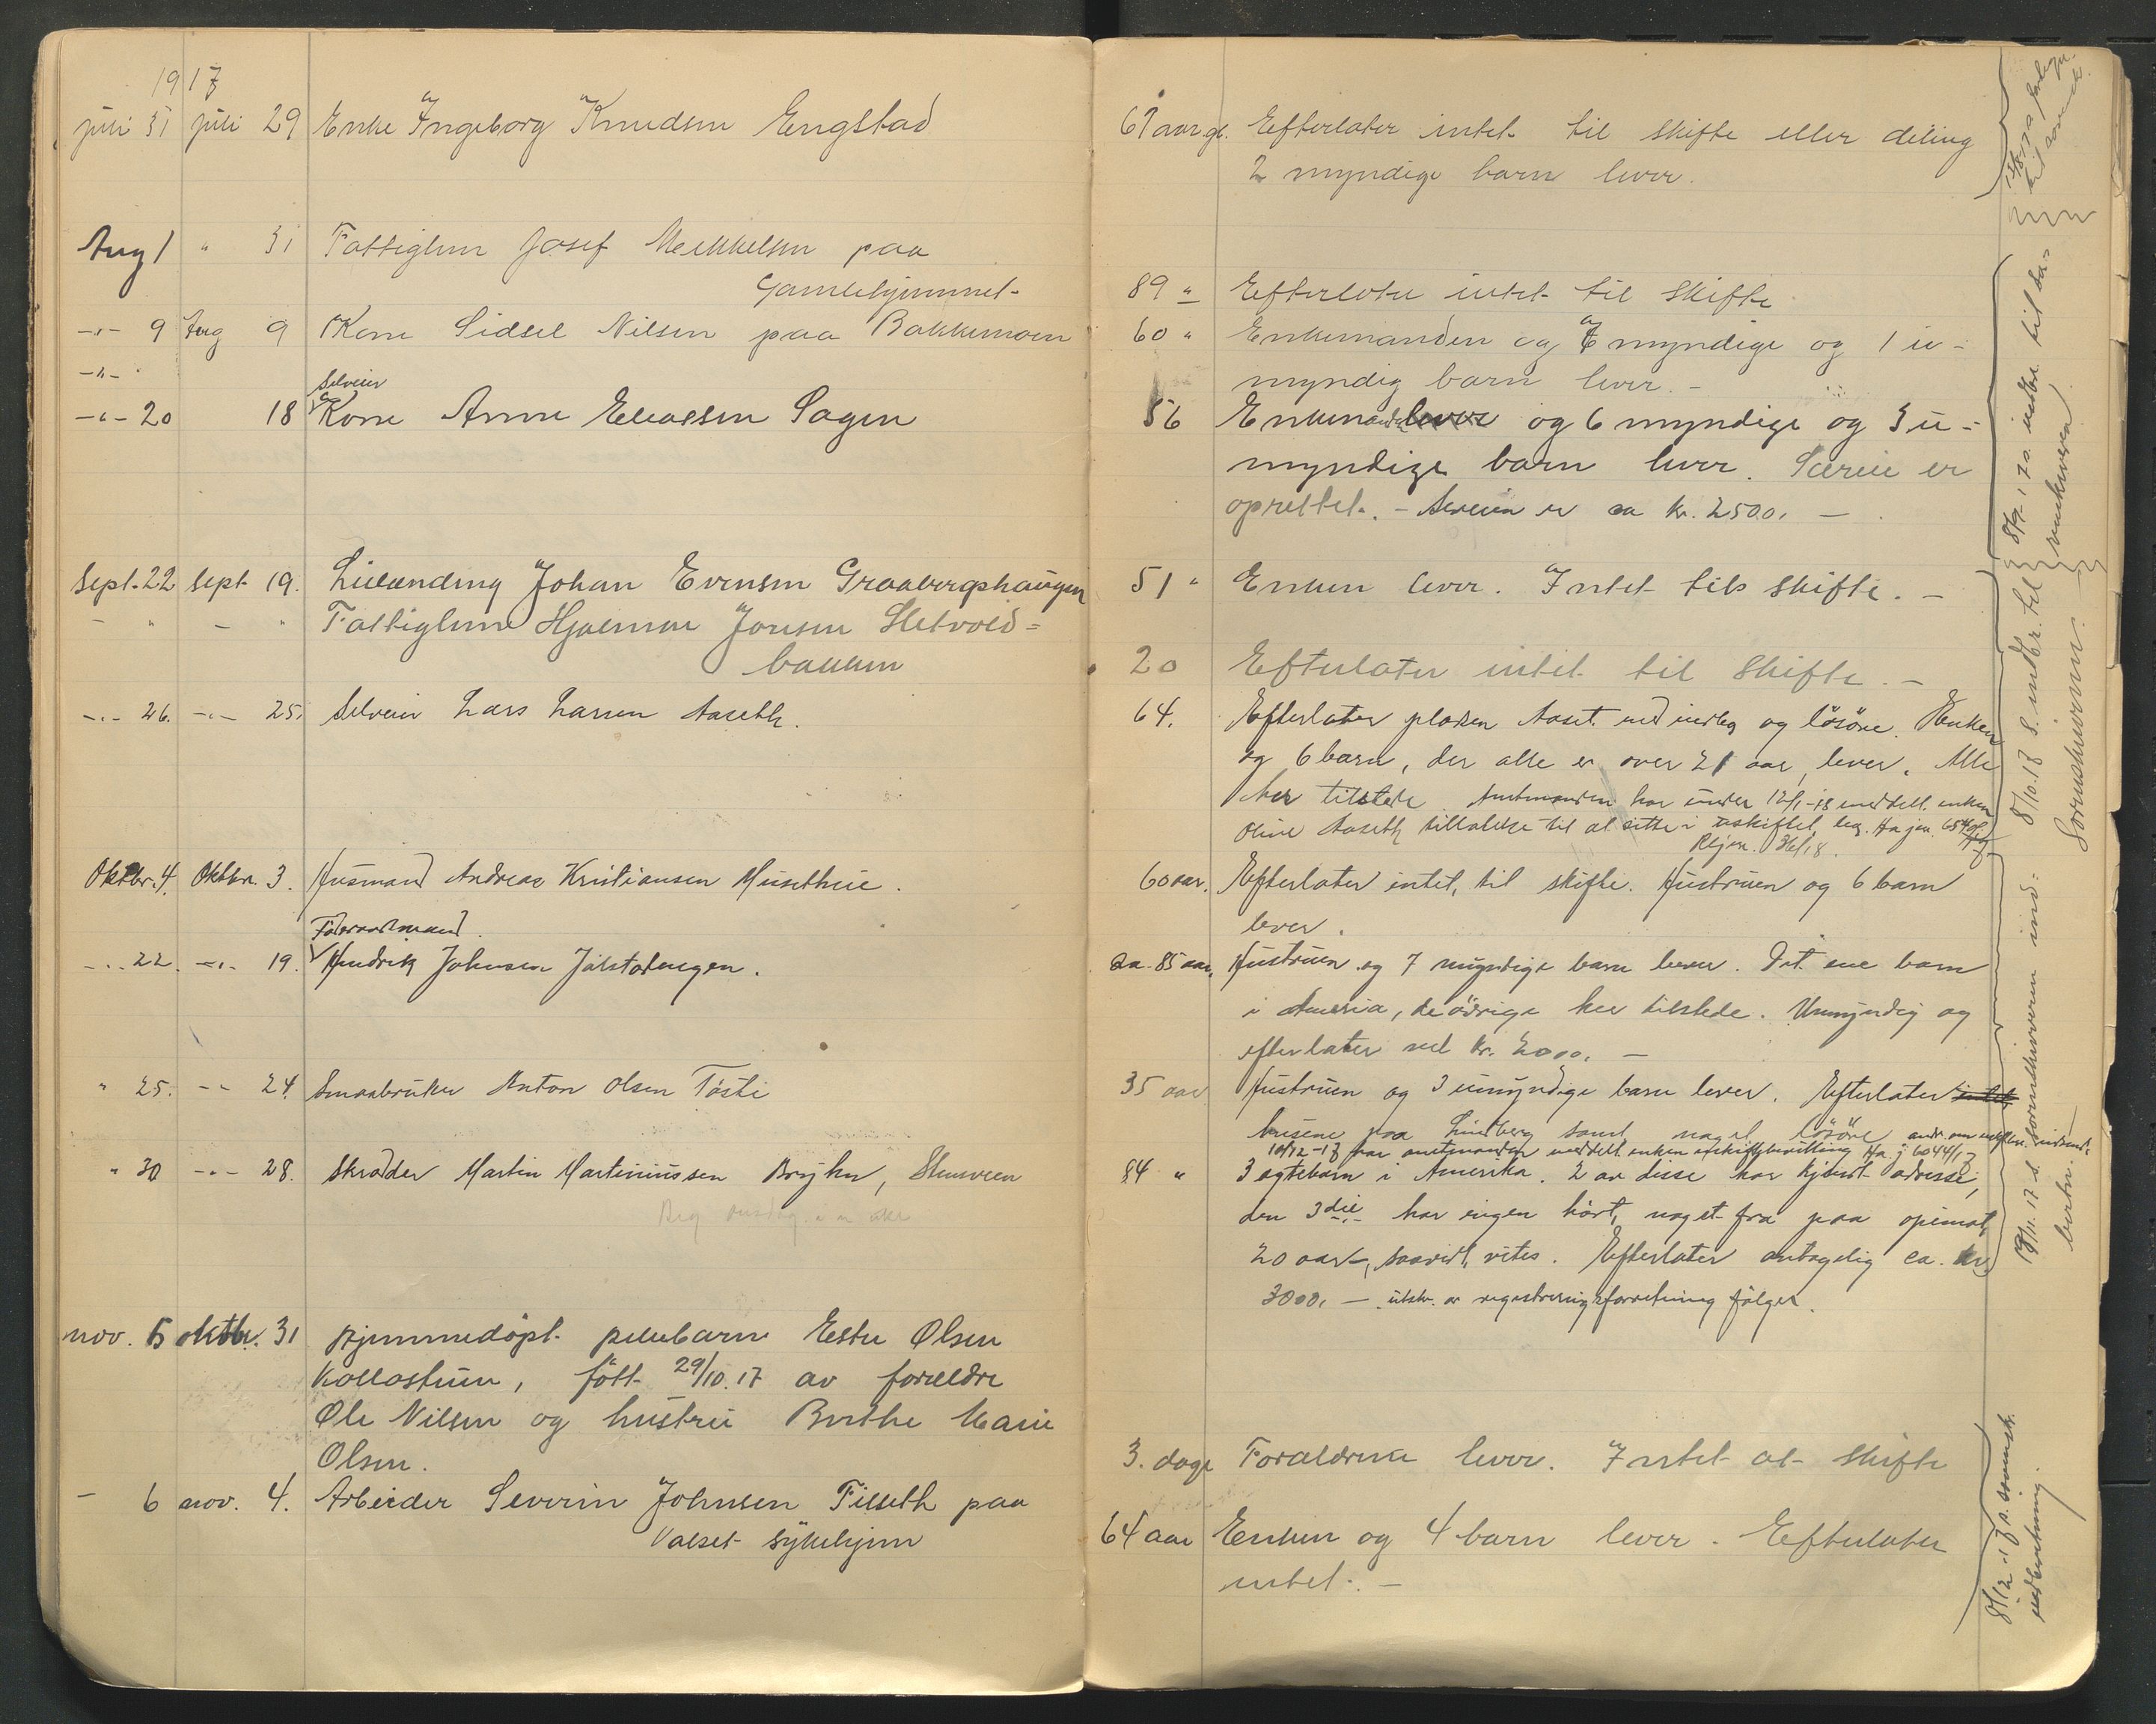 1917
juli 31 juli 29 Enke Ingeborg Knudsen Engstad
Aug 1 " 31 Fattiglem Josef Mekkelsen paa
Gamlehjemmet
-"- 9 Aug 9 Kone Sidsel Nilsen paa Bakkemoen
-"-
Selveier
-"- 20 18 Kone Anne Eliassen Sagen
Sept. 22 Sept 19. Johan Evensen Graabergshaugen
- " - " Fattiglem Hjalmar Jonsen Sletvold=
bakken
-"- 26. -"- 25. Selveier Lars Larsen Aaseth.
Oktbr. 4. Oktbr. 3. Husmand Andreas Kristiansen Musethuie.
Föderaadsmand.
-"- 22. -"- 19. Hendrik Johnsen
" 25. -"- 24. Smaabruker Anton Olsen Tøsti
" 30 -"- 28. Skrædder Martin Martiniussen Bryhn,
nov. 5 oktbr. 31 Hjemmedøpt pikebarn Ester Olsen
Kollastuen, født 29/10.17 av forældre
Ole Nilsen og hustru Berthe Marie
Olsen.
- 6 nov. 4. Arbeider Severin Johnsen Fisseth paa
Valset sykehjem
67 aar gl. Efterlater intet til skifte eller deling
2 myndige barn lever.
89 " Efterlater intet til skifte
60 " Enkemanden og 7 myndige og 1 u-
myndig barn lever. -
56 Enkemanden lever og 6 myndige og 3 u-
myndige barn lever. Særeie er
oprettet. - er ca kr. 2500. -
51 " Enken lever. Intet til skifte. -
20 Efterlater intet til skifte. -
64. Efterlater pladsen Aaset med indbo og løsøre. Enken
og 6 barn, der alle er over 21 aar, lever. Alle
her tilstede. Amtmanden har under 12/1-18 meddelt enken
Oline Aaseth tilladelse til at sitte i uskiftet
60 aar. Efterlater intet til skifte. Hustruen og 6 barn
lever.
ca. 85 aar. Hustruen og 7 myndige barn lever. Det ene barn
i Amerika, de øvrige her tilstede. Umyndig og
efterlater ved kr. 2000. -
35 aar Hustruen og 3 umyndige barn lever. Efterlater intet
husene paa Lundberg samt noget løsøre
10/12-17 har amtmanden meddelt enken uskiftebevilling Ha. j 6044/17
84 " 3 egtebarn i Amerika. 2 av disse har kjendt adresse,
den 3die har ingen hørt noget fra paa opimot
20 aar, saavidt vites. Efterlater antagelig ca. kr.
3000. - utskr. av registreringsforretning følger.
3. dage Forældrene lever. Intet at skifte
64 aar Enken og 4 barn lever. Efterlater
intet. -
8/10.17 s. indbr. til
Sorenskriveren.
19/11.17 s. Sorenskriveren ind-
8/12-17 s. sorensk.
indberetning.